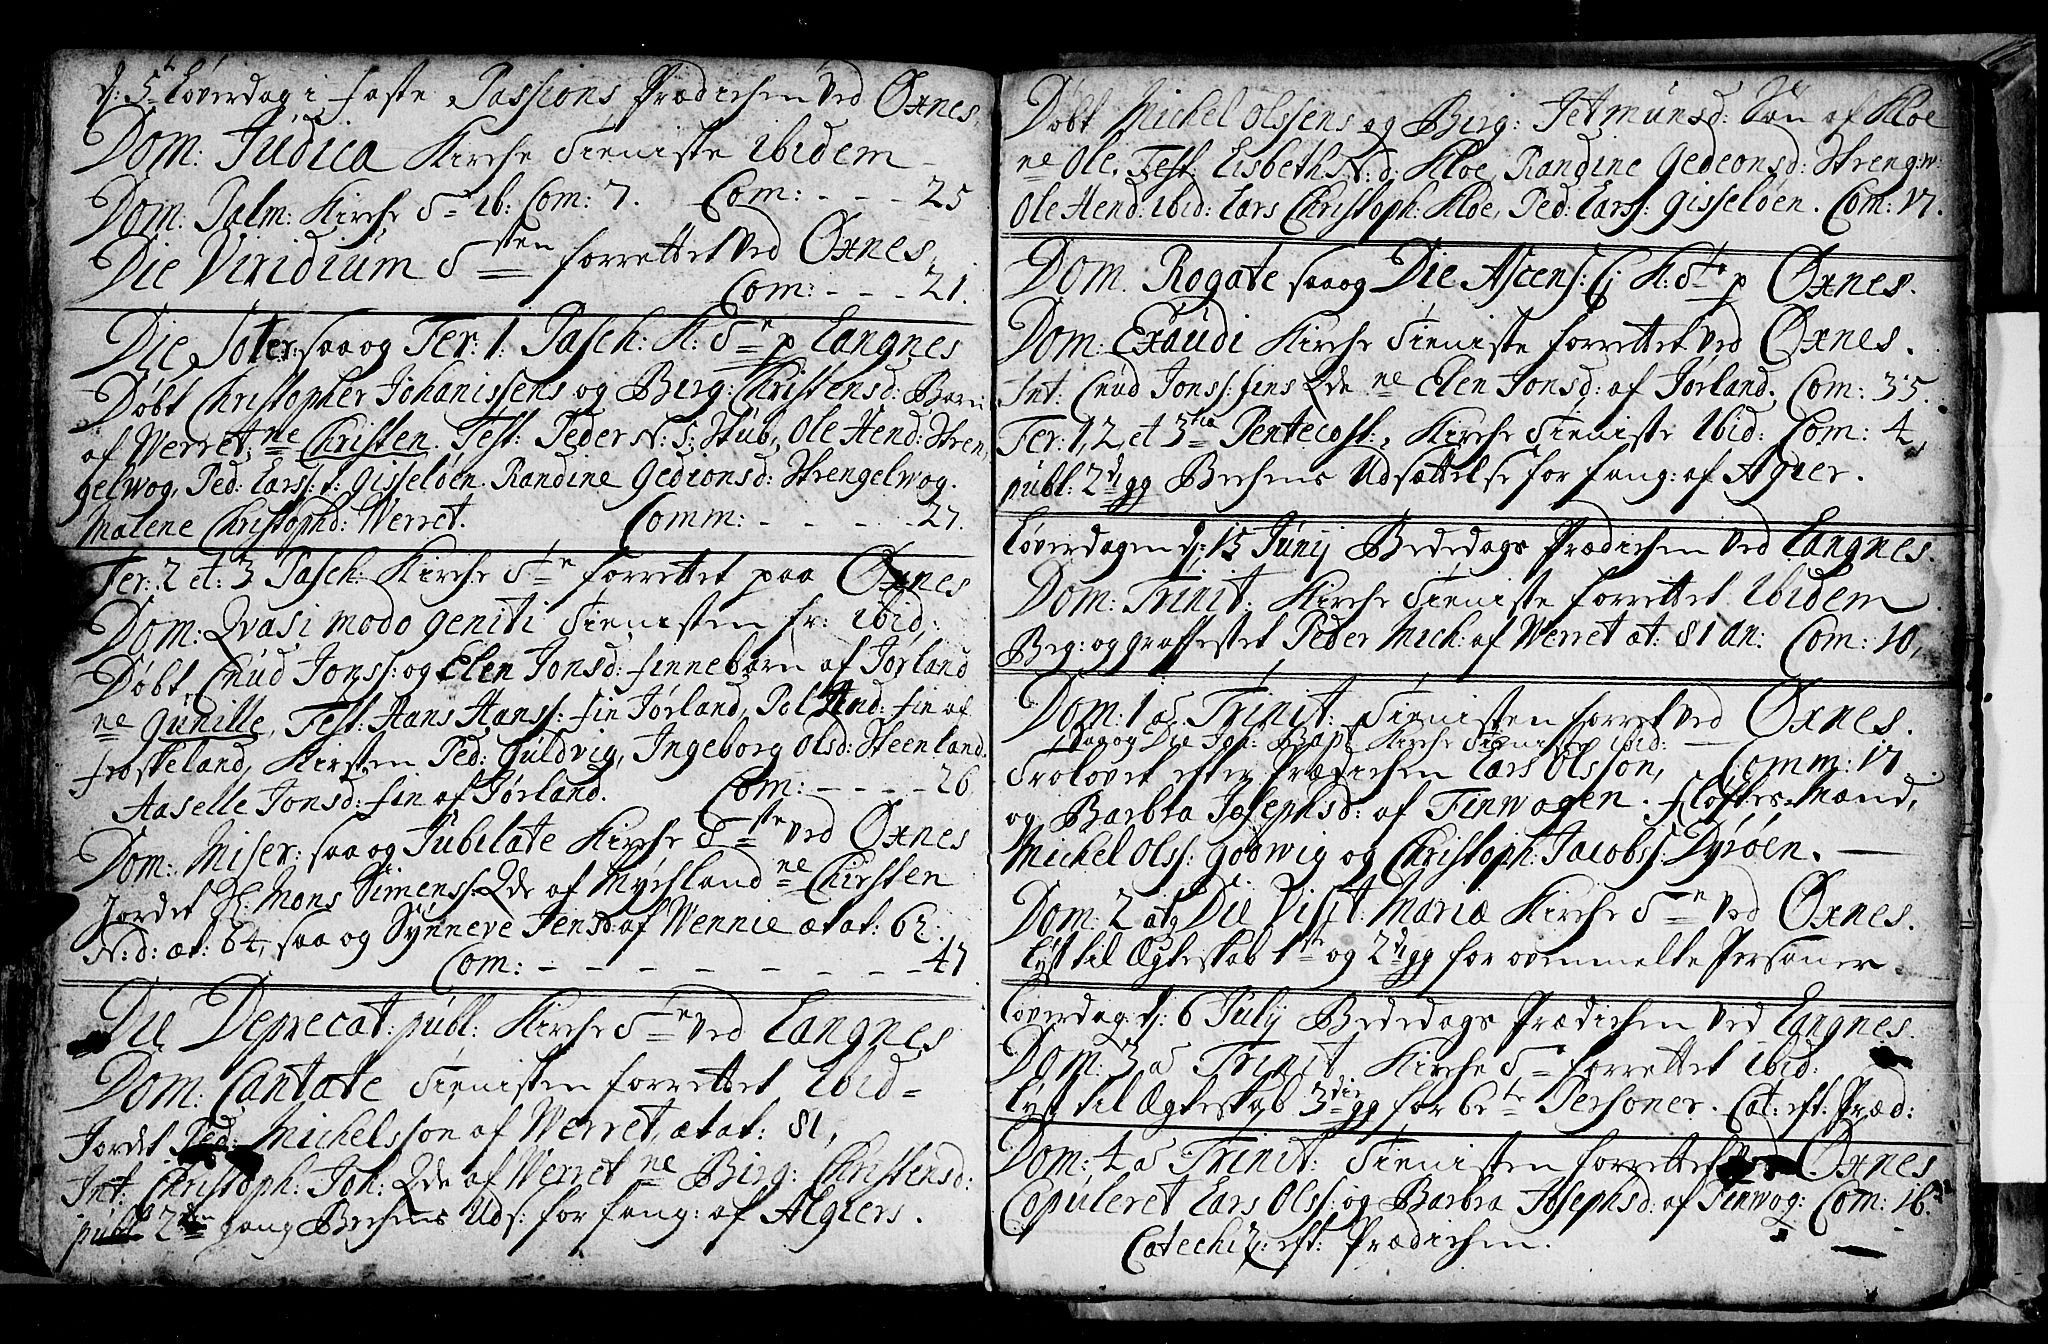 d: 5te Løverdag i faste Passions Prædichen ved Øxnes.
Dom: Judica Kirche Tieniste ibidem
Dom: Palm: Kirche T— ib: Com: 7. Com: - - - 25
Die Viridium T—sten forrettet ved Øxnes.
Com: - - - 21.
Die Soter: saa og Fer: 1: Pasch: K: T—n p Langnes
Døbt Christopher Johanissens og Berg: Christensd: Barn
af Werret, ne Christen. Test: Peder N: S: Stub, Ole Hend: Stren
gelwog, Ped: Lars: Gisseløen. Randine Gedionsd: Strengelwog.
Malene Christophd: Werret. Comm: - - - - 27.
Fer: 2 et: 3 Pasch: Kirche T—n forrettet paa Øxnes
Dom: Qvasi modo geniti Tienisten fr: ibid:
Døbt Cnud Jonss: og Elen Jonsd: finnebarn af Jørland
ne Gunille, Test: Hans Hanss: fin Jørland, Pol And: fin af
froskeland, Kirsten Ped: Guldvig, Ingeborg Olsd: Steenland.
Aaselle Jonsd: fin af Jørland. Com: - - - - 26
Dom: Miser: saa og Jubilate Kirche T—ste ved Øxnes
Jordet Sl. Mons Simenss: Qde af Myhsland ne Chirsten
N: d: æt: 64, saa og Synneve Jensd: af Wennie ætat: 62:
Com: - - - - - - - - - 47
Die Deprecat: publ: Kirche T—n ved Langnes
Dom: Cantate Tienisten forrettet Ibid=
Jordt Ped: Michelssøn af Werret, ætat: 81,
Int: Christoph: Joh: Qde af Werret ne Birg: Christensd:
publ: 2den gang Bechens Uds: for fang: af Algiers.
Døbt Michel Olssens og Berg: Jetmunsd: Søn af Kloe
ne Ole. Test: Lisbeth N: d: Kloe, Randine Gedeonsd: Strengw:
Ole Hend: ibid: Lars Christoph: Kloe, Ped: Larss: Gisseløen. Com: 17.
Dom. Rogate saa og Die Ascens: Cj K: T—te p Øxnes.
Dom: Exaudi Kirche Tieniste forrettet ved Øxnes.
Int: Cnud Jonss: fins Qde ne Elen Jonsd: af Jørland. Com: 35.
Fer: 1, 2, et 3tia Pentecost:, Kirche Tieniste Ibid: Com: 4,
publ: 2d gg Bechens Udsættelse for fang: af Algier.
Løverdagen d: 15 Junij Bededags Prædichen ved Langnes.
Dom: Trinit: Kirche Tieniste forrettet Ibidem
Beg: og graffestet Peder Mich: af Werret æt: 81 an: Com: 10,
Dom: 1 a Trinit: Tienisten forret ved Øxnes.
saa og Die Joh: Bapt Kirche Tieniste ibid:
Trolovet efter Prædichen Lars Olsson, Comm: 17
og Barbra Josephsd: af Finwogen. fløftes-Mænd,
Michel Olss: Godwig og Christoph: Jacobss: Dyrøen.
Dom: 2 atq Die Visit: Mariæ Kirche T—n ved Øxnes.
Lyst til Ægteskab 1ste og 2d gg for ovenmelte Personer
Løverdag: d: 6 Julij Bededags Prædichen ved Langnes.
Dom: 3 a Trinit Kirche T— forrettet ibid:
Lyst til Ægteskab 3die gg for bete Personer. Cat: eft: Præd:
Dom: 4 a Trinit: Tienisten forrettet ved Øxnes
Copuleret Lars Olss: og Barbra Josephsd: af Finwog: Com: 16.
Catechiz: eft: Prædichen.